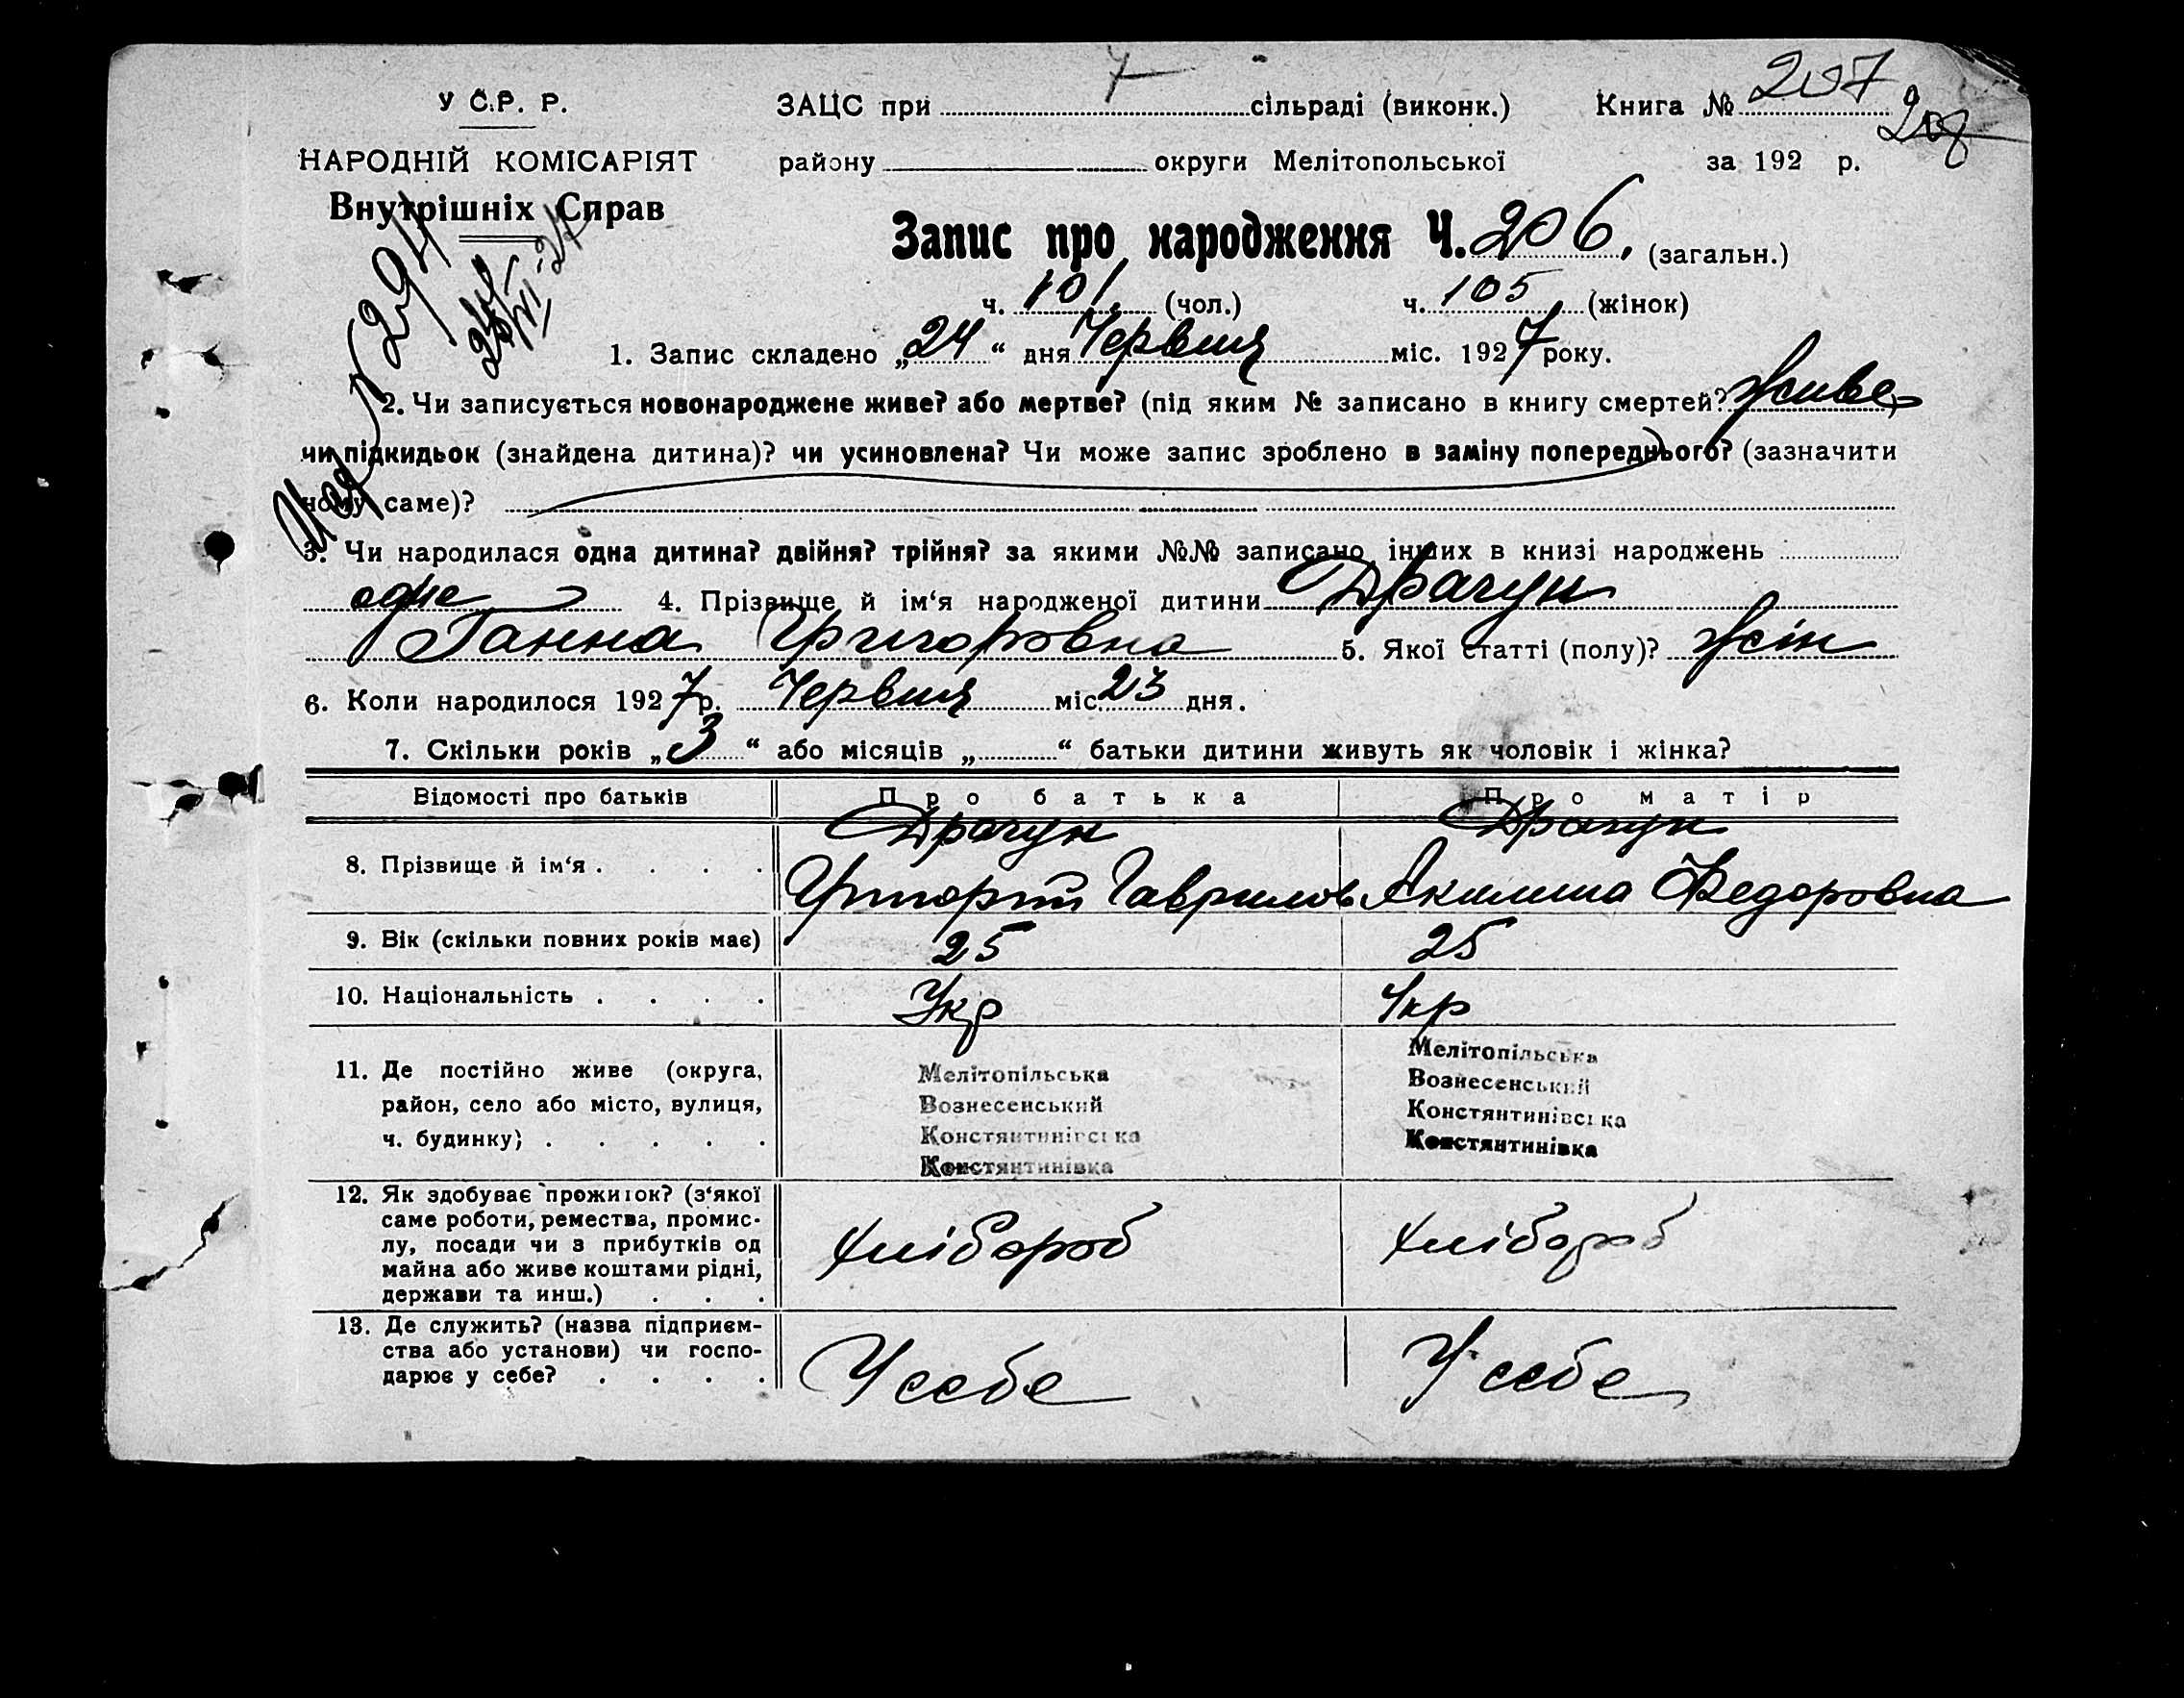 7
У С.Р. Р.
ЗАЦС при сільраді (виконк.) Книга № 207
208
НАРОДНІЙ КОМІСАРІЯТ
району округи Мелітопольської за 192 р.
Внутрішніх Справ
Запис про народження Ч. 206. (загальн.)
ч. 101. (чол.) ч. 105 (жінок)
1. Запис складено „24“ дня Червня міс. 1927 року.
2. Чи записується новонароджене живе? або мертве? (під яким № записано в книгу смертей? живе)
чи підкидьок (знайдена дитина)? чи усиновлена? Чи може запис зроблено в заміну попереднього? (зазначити
чому саме)?
3. Чи народилася одна дитина? двійня? трійня? за якими №№ записано інших в книзі народжень
одне 4. Прізвище й ім‘я народженої дитини Драгун
Ганна Григоровна 5. Якої статті (полу)? жін
6. Коли народилося 1927 р. Червня міс. 23 дня.
7. Скільки років „3“ або місяців „“ батьки дитини живуть як чоловік і жінка?
Відомості про батьків Про батька Про матір
Драгун Драгун
8. Прізвище й ім‘я . . . . Григорий Гаврилов Акилина Федоровна
9. Вік (скільки повних років має) 25 25
10. Національність . . . . Укр Укр
11. Де постійно живе (округа, Мелітопільська Мелітопільська
район, село або місто, вулиця, Вознесенський Вознесенський
ч. будинку) . . . . . Констянтинівська Констянтинівська
Констянтинівка Констянтинівка
12. Як здобуває прожиток? (з‘якої
саме роботи, ремества, промис-
лу, посади чи з прибутків од хлібороб хлібороб
майна або живе коштами рідні,
держави та инш.) . . .
13. Де служить? (назва підприєм-
ства або установи) чи госпо-
дарює у себе? . . . . У себе У себе